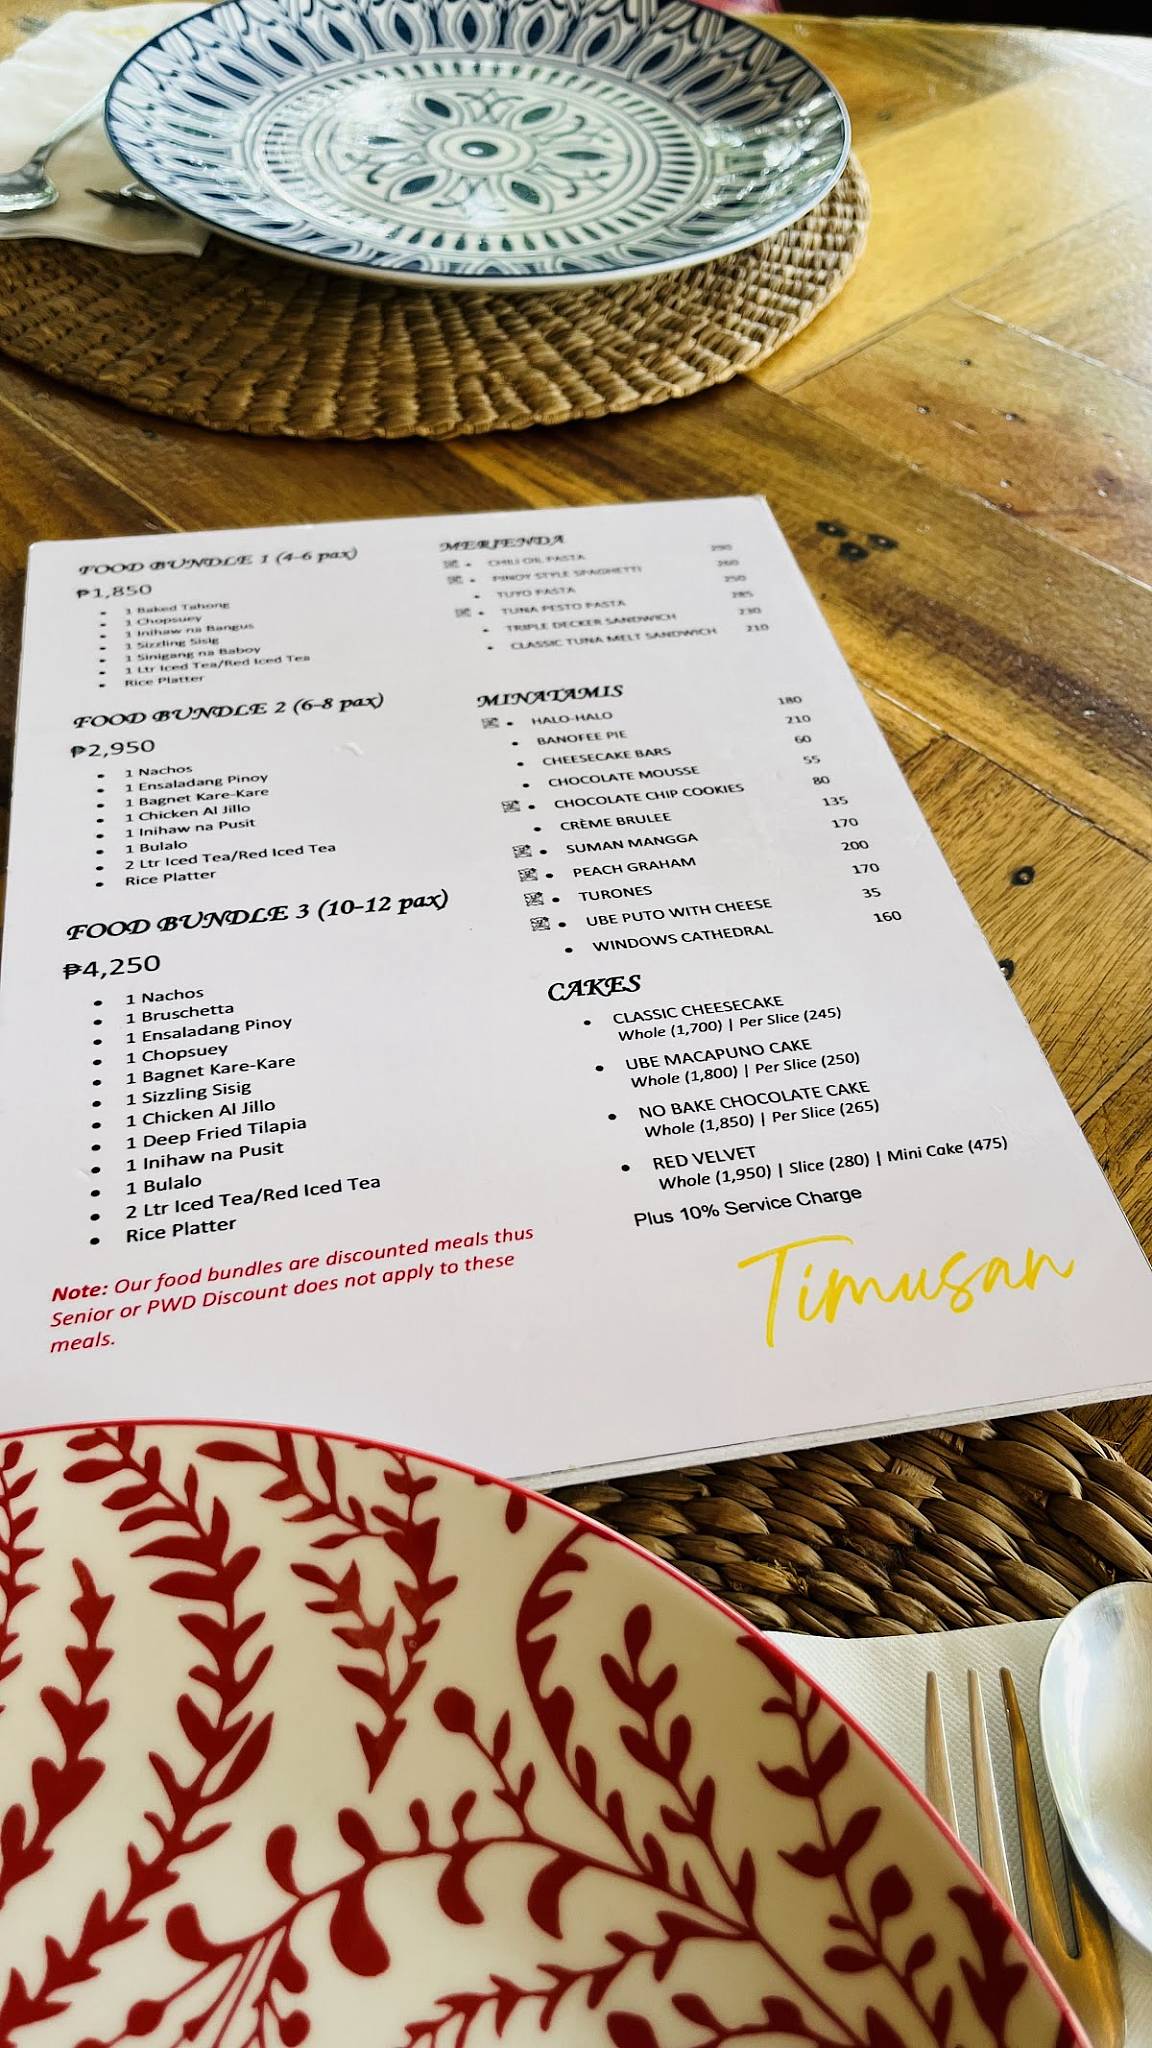 FOOD BUNDLE 1 (4-6 pax)
₱1,850
• 1 Baked Tahong
• 1 Chopsuey
• 1 Inihaw na Bangus
• 1 Sizzling Sisig
• 1 Sinigang na Baboy
• 1 Ltr Iced Tea/Red Iced Tea
• Rice Platter
FOOD BUNDLE 2 (6-8 pax)
₱2,950
• 1 Nachos
• 1 Ensaladang Pinoy
• 1 Bagnet Kare-Kare
• 1 Chicken Al Jillo
• 1 Inihaw na Pusit
• 1 Bulalo
• 2 Ltr Iced Tea/Red Iced Tea
• Rice Platter
FOOD BUNDLE 3 (10-12 pax)
₱4,250
• 1 Nachos
• 1 Bruschetta
• 1 Ensaladang Pinoy
• 1 Chopsuey
• 1 Bagnet Kare-Kare
• 1 Sizzling Sisig
• 1 Chicken Al Jillo
• 1 Deep Fried Tilapia
• 1 Inihaw na Pusit
• 1 Bulalo
• 2 Ltr Iced Tea/Red Iced Tea
• Rice Platter
Note: Our food bundles are discounted meals thus
Senior or PWD Discount does not apply to these
meals.
MERIENDA
• CHILI OIL PASTA 290
• PINOY STYLE SPAGHETTI 260
• TUYO PASTA 250
• TUNA PESTO PASTA 285
• TRIPLE DECKER SANDWICH 230
• CLASSIC TUNA MELT SANDWICH 210
MINATAMIS
• HALO-HALO 180
• BANOFEE PIE 210
• CHEESECAKE BARS 60
• CHOCOLATE MOUSSE 55
• CHOCOLATE CHIP COOKIES 80
• CRÈME BRULEE 135
• SUMAN MANGGA 170
• PEACH GRAHAM 200
• TURONES 170
• UBE PUTO WITH CHEESE 35
• WINDOWS CATHEDRAL 160
CAKES
• CLASSIC CHEESECAKE
Whole (1,700) | Per Slice (245)
• UBE MACAPUNO CAKE
Whole (1,800) | Per Slice (250)
• NO BAKE CHOCOLATE CAKE
Whole (1,850) | Per Slice (265)
• RED VELVET
Whole (1,950) | Slice (280) | Mini Cake (475)
Plus 10% Service Charge
Timusan